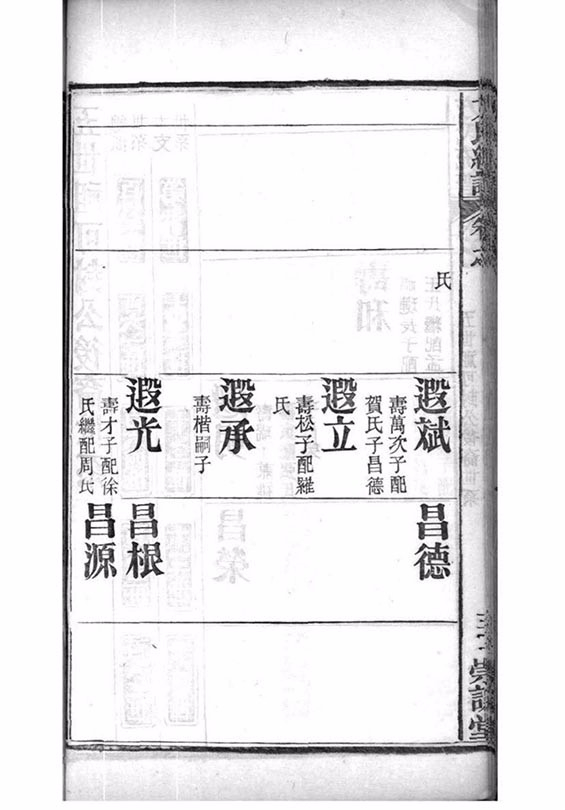 氏
遐斌
壽萬次子配
賀氏子昌德
遐立
壽松子配羅
氏
遐承
壽楷嗣子
遐光
壽才子配徐
氏繼配周氏
昌德
昌根
昌源